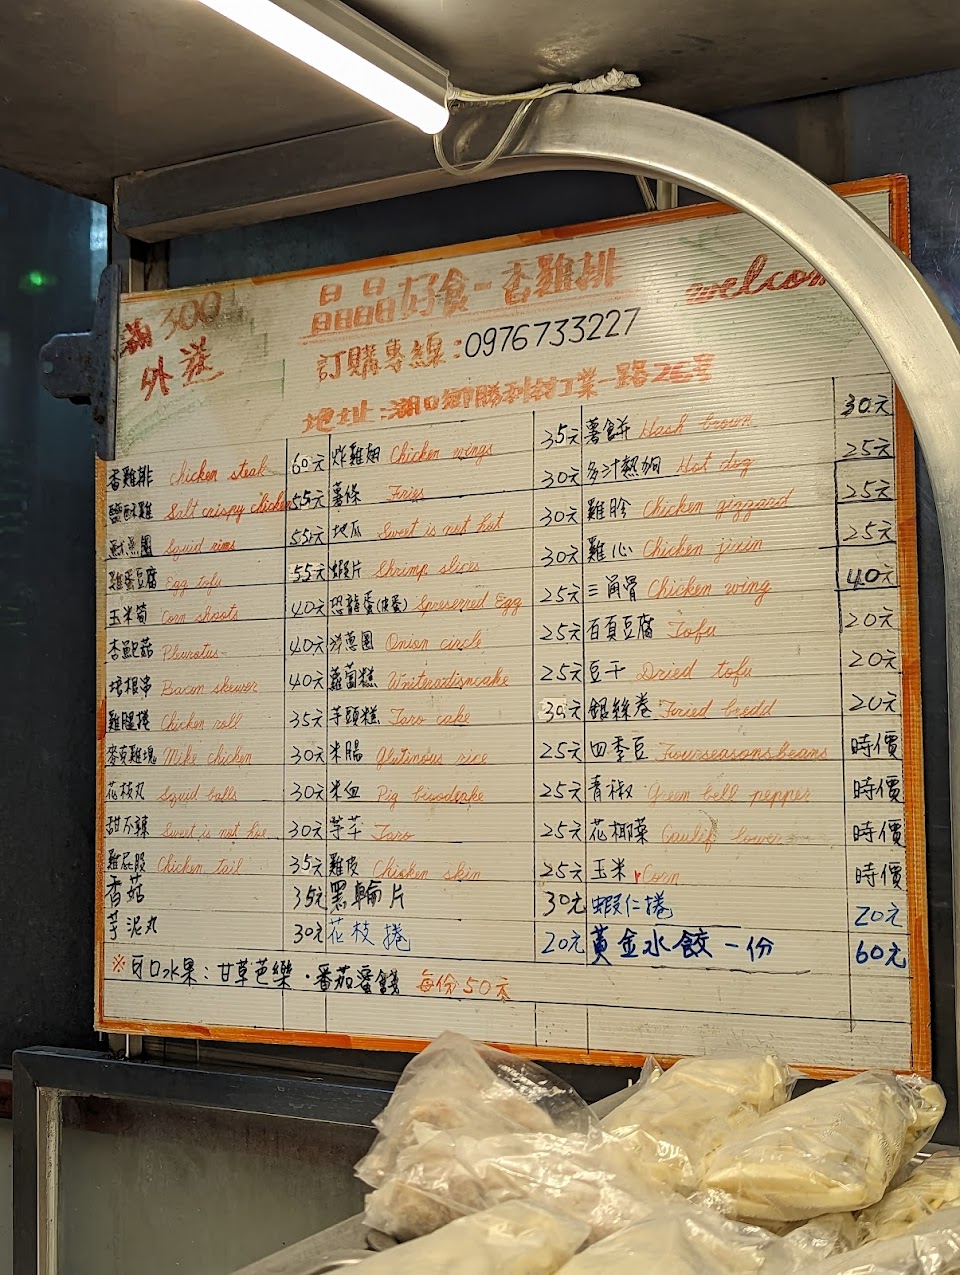 滿300
外送
晶晶好食-香雞排
welcom
訂購專線:0976733227
地址:湖口鄉勝利村工業一路26号
香雞排 chicken steak 60元 炸雞翅 Chicken wings 35元 薯餅 Hash brown 30元
鹽酥雞 Salt crispy chicken 55元 薯條 Fries 30元 多汁熱狗 Hot dog 25元
魷魚圈 Squid rims 55元 地瓜 Sweet is not hot 30元 雞胗 Chicken gizzard 25元
雞蛋豆腐 Egg tofu 55元 蝦片 Shrimp slices 30元 雞心 Chicken jixin 25元
玉米筍 Corn shoots 40元 恐龍蛋(皮蛋) Spreserred Egg 25元 三角骨 Chicken wing 40元
杏鮑菇 Pleurotus 40元 洋蔥圈 Onion circle 25元 百頁豆腐 Tofu 20元
培根串 Bacon skewer 40元 蘿蔔糕 Writeradishcake 25元 豆干 Dried tofu 20元
雞腿捲 Chicken roll 35元 芋頭糕 Taro cake 30元 銀絲卷 Fried bredd 20元
麥克雞塊 Mike chicken 30元 米腸 Glutinous rice 25元 四季豆 Fourseasonsbeans 時價
花枝丸 Squid balls 30元 米血 Pig bloodcake 25元 青椒 Green bell pepper 時價
甜不辣 Sweet is not hot 30元 芋芊 Taro 25元 花椰菜 Caulif lower 時價
雞屁股 Chicken tail 35元 雞皮 Chicken skin 25元 玉米 Corn 時價
香菇 35元 黑輪片 30元 蝦仁捲 20元
芋泥丸 30元 花枝捲 20元 黃金水餃一份 60元
※可口水果:甘草芭樂·番茄蜜餞 每份50元